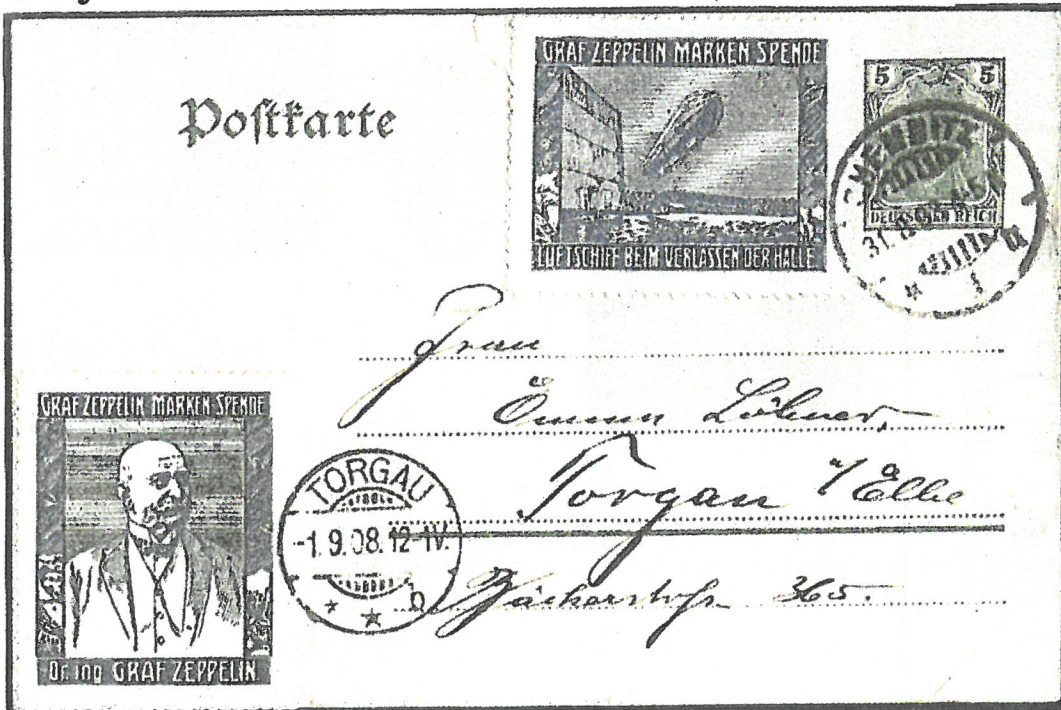 Postkarte
GRAF ZEPPELIN MARKEN SPENDE
LUFTSCHIFF BEIM VERLASSEN DER HALLE
5 5
DEUTSCHES REICH
CHEMNITZ
31.8.
Frau
Emma Löhner,
Torgau a/Elbe
Bäckerstraße 365.
GRAF ZEPPELIN MARKEN SPENDE
Dr. ing GRAF ZEPPELIN
TORGAU
-1.9.08.12-1V.
b